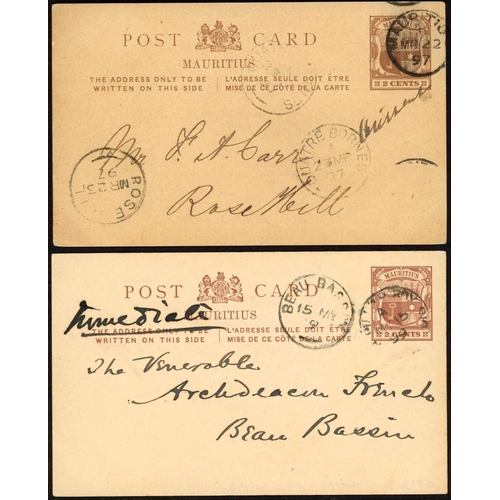 POST CARD
MAURITIUS
THE ADDRESS ONLY TO BE WRITTEN ON THIS SIDE
L'ADRESSE SEULE DOIT ÊTRE MISE DE CE CÔTÉ DE LA CARTE
MAURITIUS
MR 22
97
2 CENTS
QUATRE BORNES
A
23 MR
97
Mr. F. A. Carr
Rose Hill
ROSE
MR 23
97
POST CARD
MAURITIUS
Immediate
THE ADDRESS ONLY TO BE WRITTEN ON THIS SIDE
L'ADRESSE SEULE DOIT ÊTRE MISE DE CE CÔTÉ DE LA CARTE
BEAU BASSIN
15 MY
MAURITIUS
2 CENTS
The Venerable
Archdeacon French
Beau Bassin